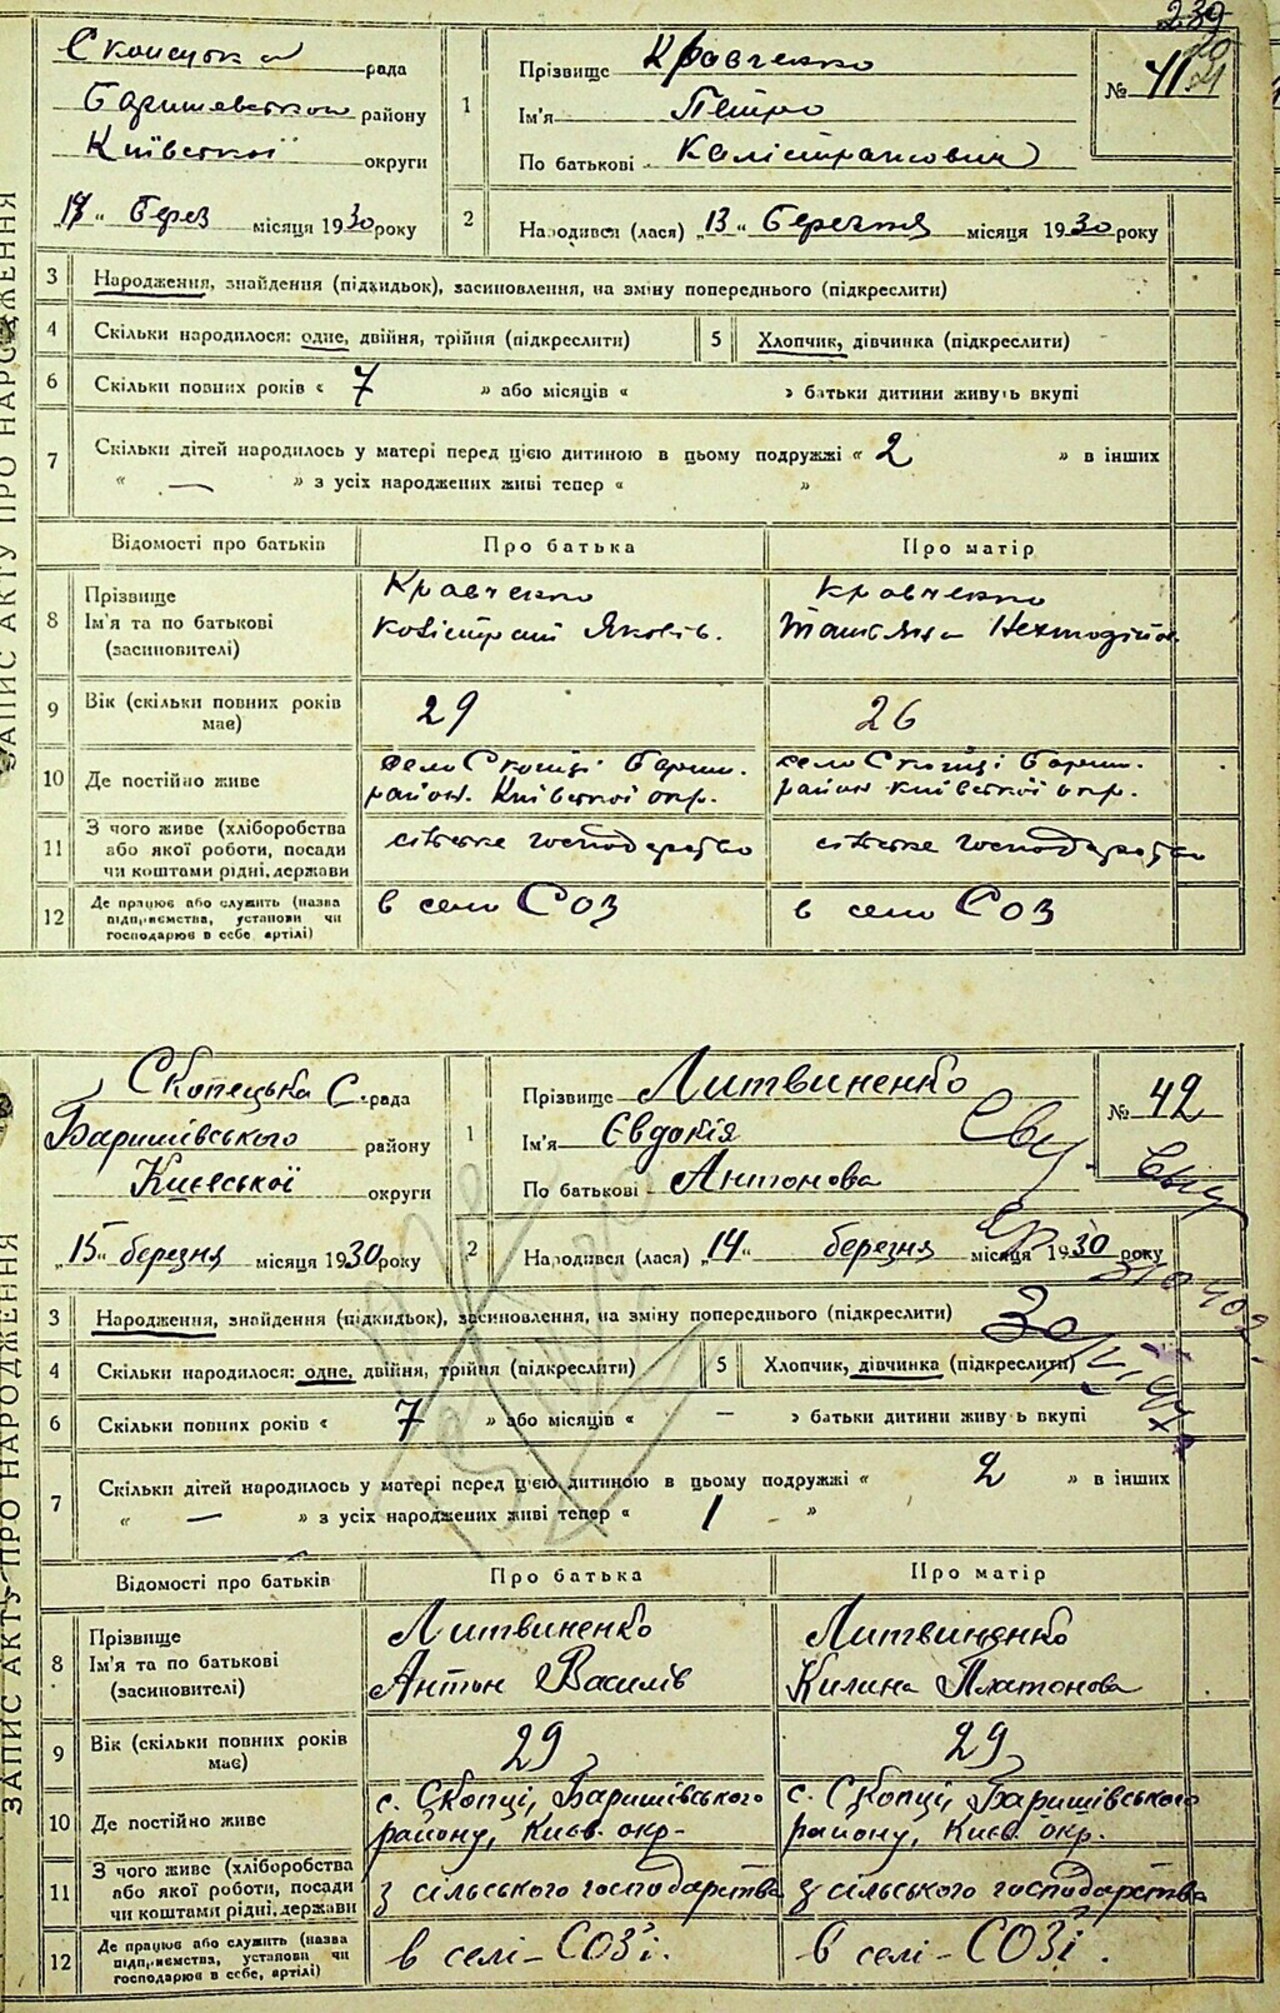 239
Скопецька рада
Баришевського району
Київської округи
1
Прізвище Кравченко
Ім'я Петро
По батькові Калістратович
№ 41
„17“ Берез місяця 1930 року
2
Народився (лася) „13“ Березня місяця 1930 року
ЗАПИС АКТУ ПРО НАРОДЖЕННЯ
3 Народження, знайдення (підкидьок), засиновлення, на зміну попереднього (підкреслити)
4 Скільки народилося: одне, двійня, трійня (підкреслити) 5 Хлопчик, дівчинка (підкреслити)
6 Скільки повних років « 7 » або місяців « » батьки дитини живуть вкупі
7 Скільки дітей народилось у матері перед цією дитиною в цьому подружжі « 2 » в інших
« — » з усіх народжених живі тепер « »
Відомості про батьків Про батька Про матір
8 Прізвище Ім'я та по батькові (засиновителі)
Кравченко Кравченко
Яковів.
9 Вік (скільки повних років має) 29 26
10 Де постійно живе
село Скопці Бариш. село Скопці Бариш.
район. Київської окр. район Київської окр.
11 З чого живе (хліборобства або якої роботи, посади чи коштами рідні, держави
сільське господарство сільське господарство
12 Де працює або служить (назва підприємства, установи чи господарює в себе артілі)
в селі СОЗ в селі СОЗ
Скопецька С. рада
Баришівського району
Києвської округи
1
Прізвище Литвиненко
Ім'я Євдокія
По батькові Антонова
№ 42
„15“ березня місяця 1930 року
2
Народився (лася) „14“ березня місяця 1930 року
ЗАПИС АКТУ ПРО НАРОДЖЕННЯ
3 Народження, знайдення (підкидьок), засиновлення, на зміну попереднього (підкреслити)
4 Скільки народилося: одне, двійня, трійня (підкреслити) 5 Хлопчик, дівчинка (підкреслити)
6 Скільки повних років « 7 » або місяців « — » батьки дитини живу ь вкупі
7 Скільки дітей народилось у матері перед цією дитиною в цьому подружжі « 2 » в інших
« — » з усіх народжених живі тепер « 1 »
Відомості про батьків Про батька Про матір
8 Прізвище Ім'я та по батькові (засиновителі)
Литвиненко Литвиненко
Антон Василів Килина Платонова
9 Вік (скільки повних років має) 29 29
10 Де постійно живе
с. Скопці, Баришівського с. Скопці, Баришівського
району, Києв. окр- району, Києв. окр.
11 З чого живе (хліборобства або якої роботи, посади чи коштами рідні, держави
з сільського господарства з сільського господарства
12 Де працює або служить (назва підприємства, установи чи господарює в себе, артілі)
в селі – СОЗ'і. в селі – СОЗ'і.